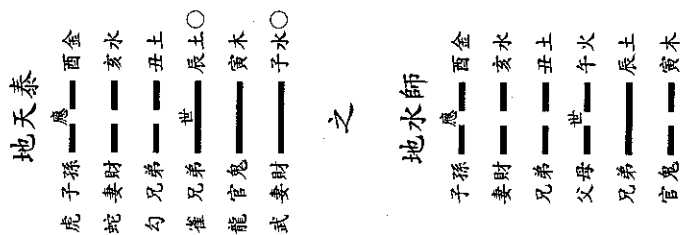 地天泰
虎 子孫 應 酉金
蛇 妻財 亥水
勾 兄弟 丑土
雀 兄弟 世 辰土○
龍 官鬼 寅木
武 妻財 子水○
之
地水師
子孫 應 酉金
妻財 亥水
兄弟 丑土
父母 世 午火
兄弟 辰土
官鬼 寅木